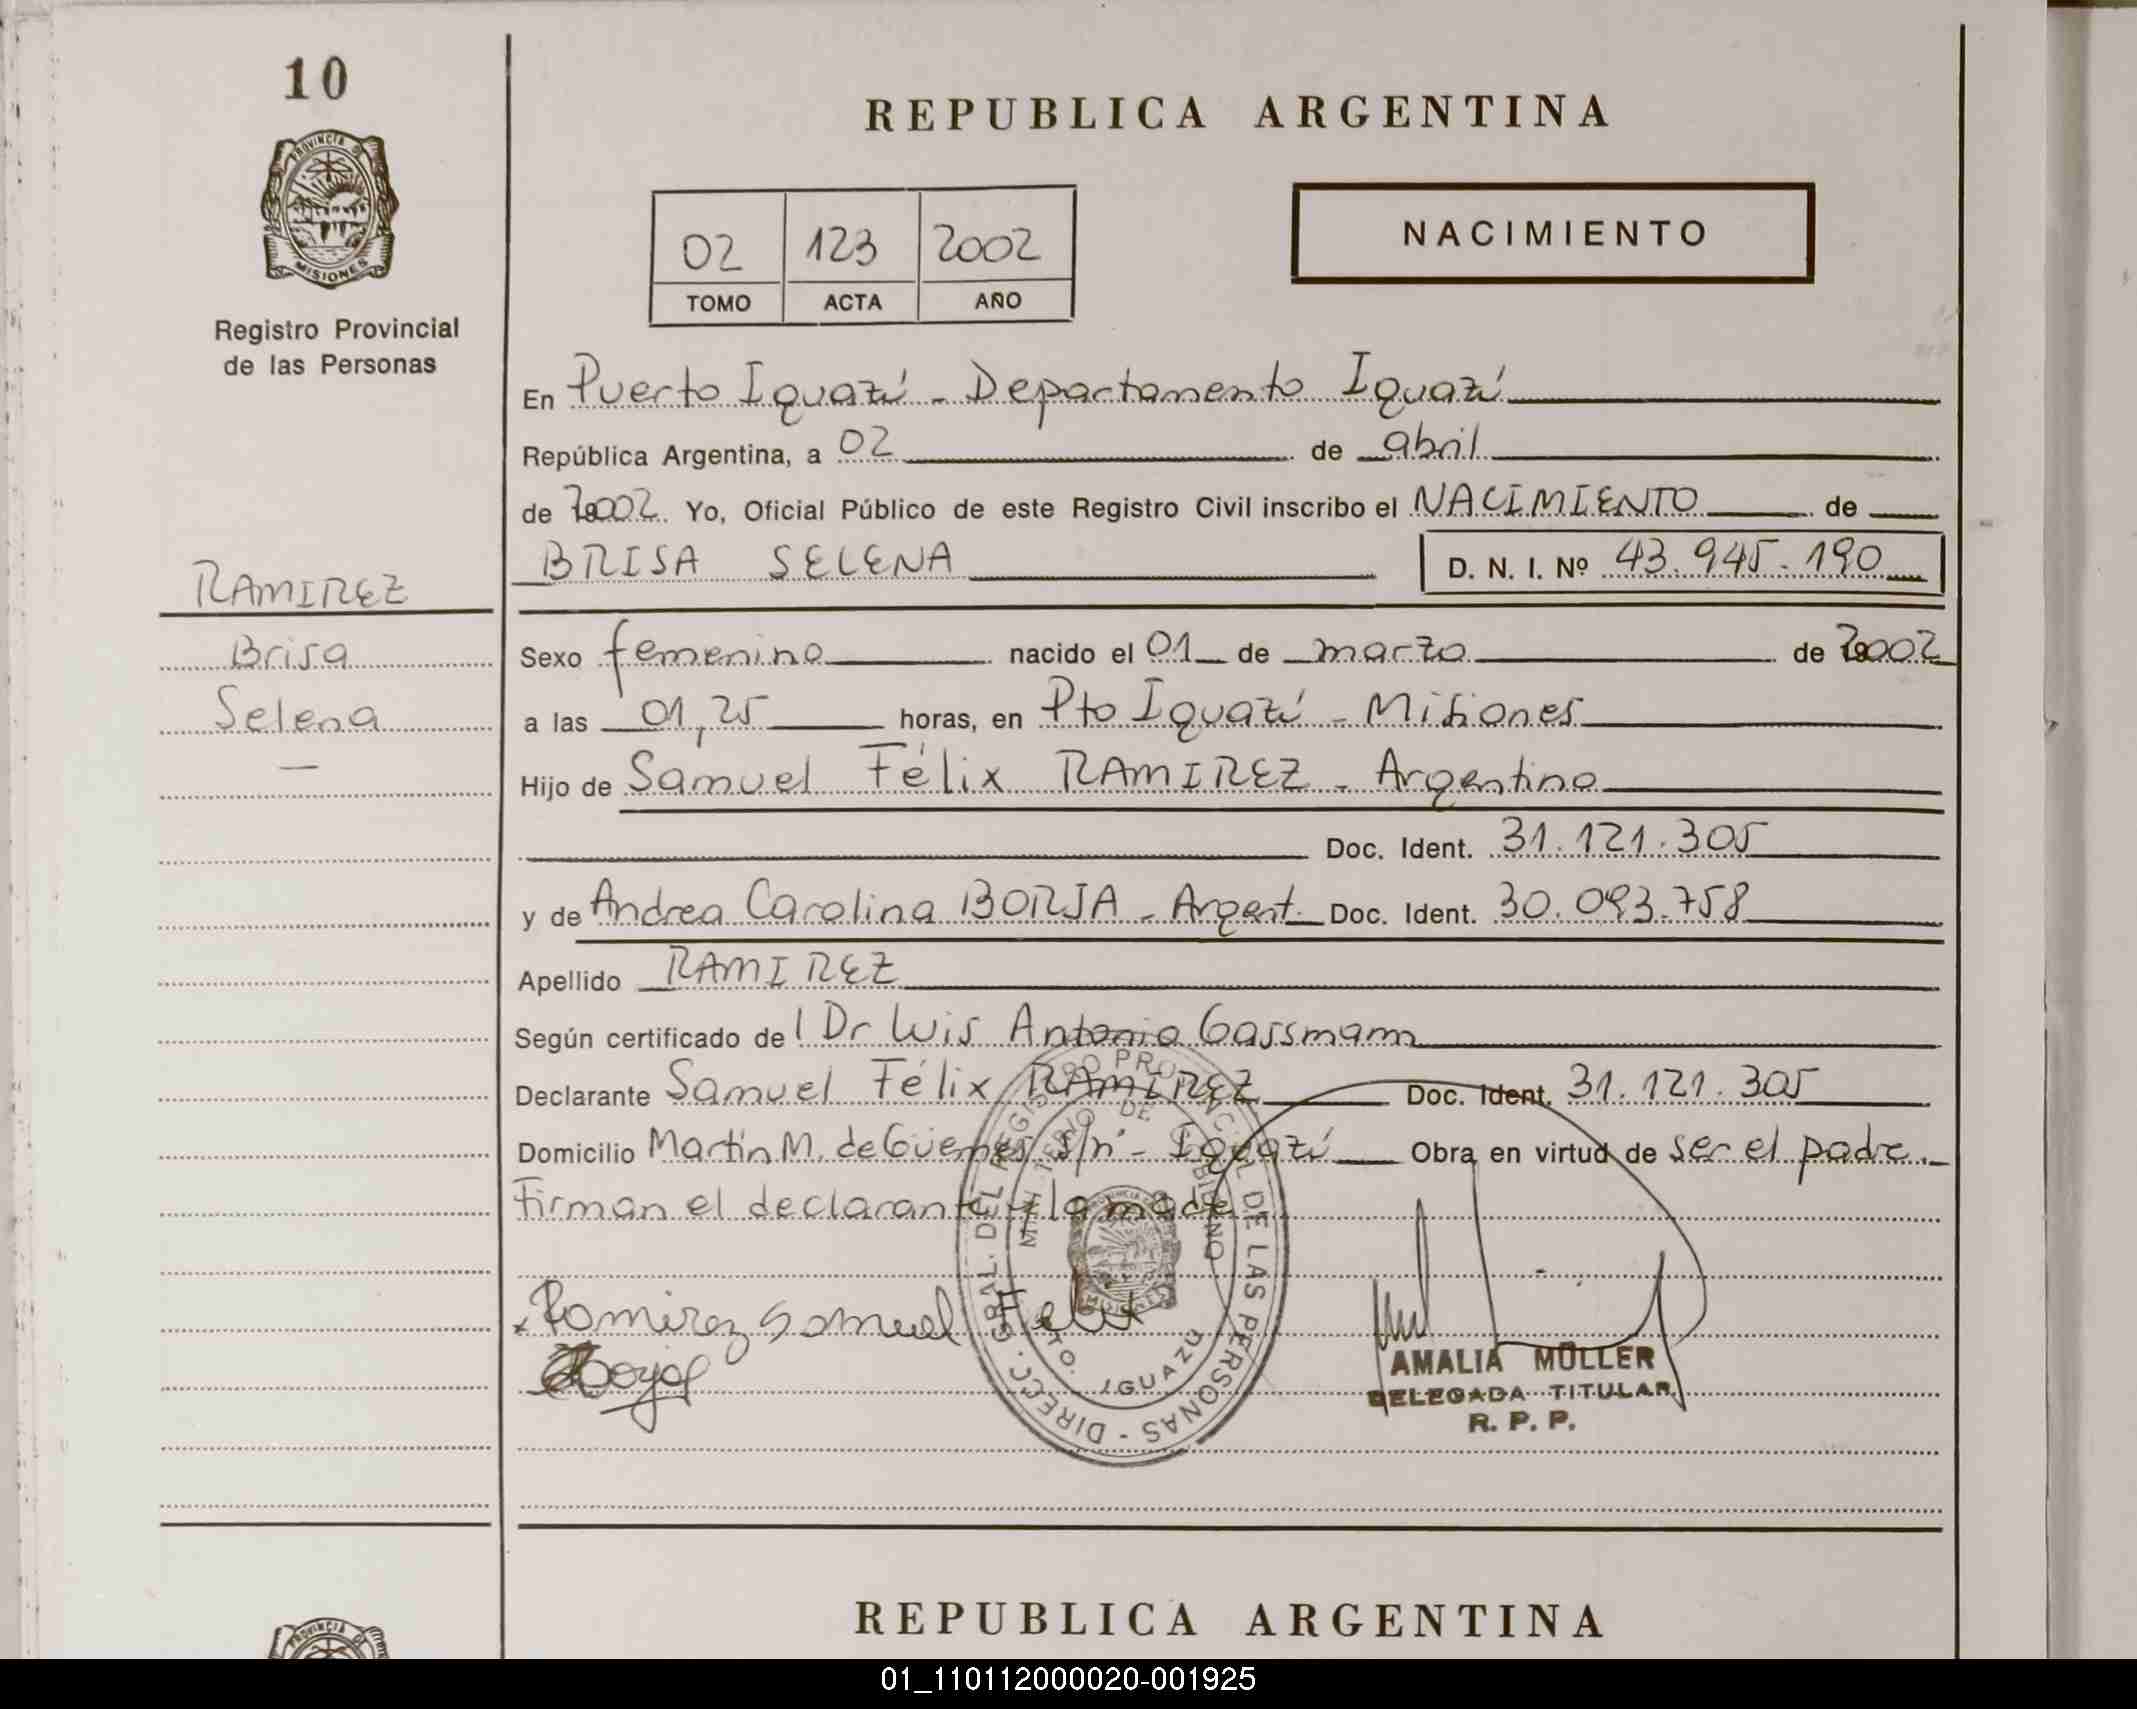 10
PROVINCIA D
MISIONES
Registro Provincial
de las Personas
REPUBLICA ARGENTINA
02 123 2002
TOMO ACTA AÑO
NACIMIENTO
En Puerto Iguazú - Departamento Iguazú
República Argentina, a 02 de abril
de 2002 Yo, Oficial Público de este Registro Civil inscribo el NACIMIENTO de
BRISA SELENA D. N. I. Nº 43.945.190
RAMIREZ
Brisa
Selena
Sexo femenino nacido el 01 de marzo de 2002
a las 01,25 horas, en Pto Iguazú - Misiones
Hijo de Samuel Félix RAMIREZ - Argentino
Doc. Ident. 31.121.305
y de Andrea Carolina BORJA - Argent. Doc. Ident. 30.093.758
Apellido RAMIREZ
Según certificado del Dr Luis Antonio Gassmann
Declarante Samuel Félix RAMIREZ Doc. Ident. 31.121.305
Domicilio Martín M. de Güemes s/nº - Iguazú Obra en virtud de ser el padre.
Firman el declarante y la made
x Ramirez Samuel Felix
DIRECC. GRAL. DEL REGISTRO PROVINCIAL DE LAS PERSONAS
MINISTERIO DE GOBIERNO
PTO. IGUAZU
MISIONES
AMALIA MÜLLER
DELEGADA TITULAR
R. P. P.
REPUBLICA ARGENTINA
01_110112000020-001925